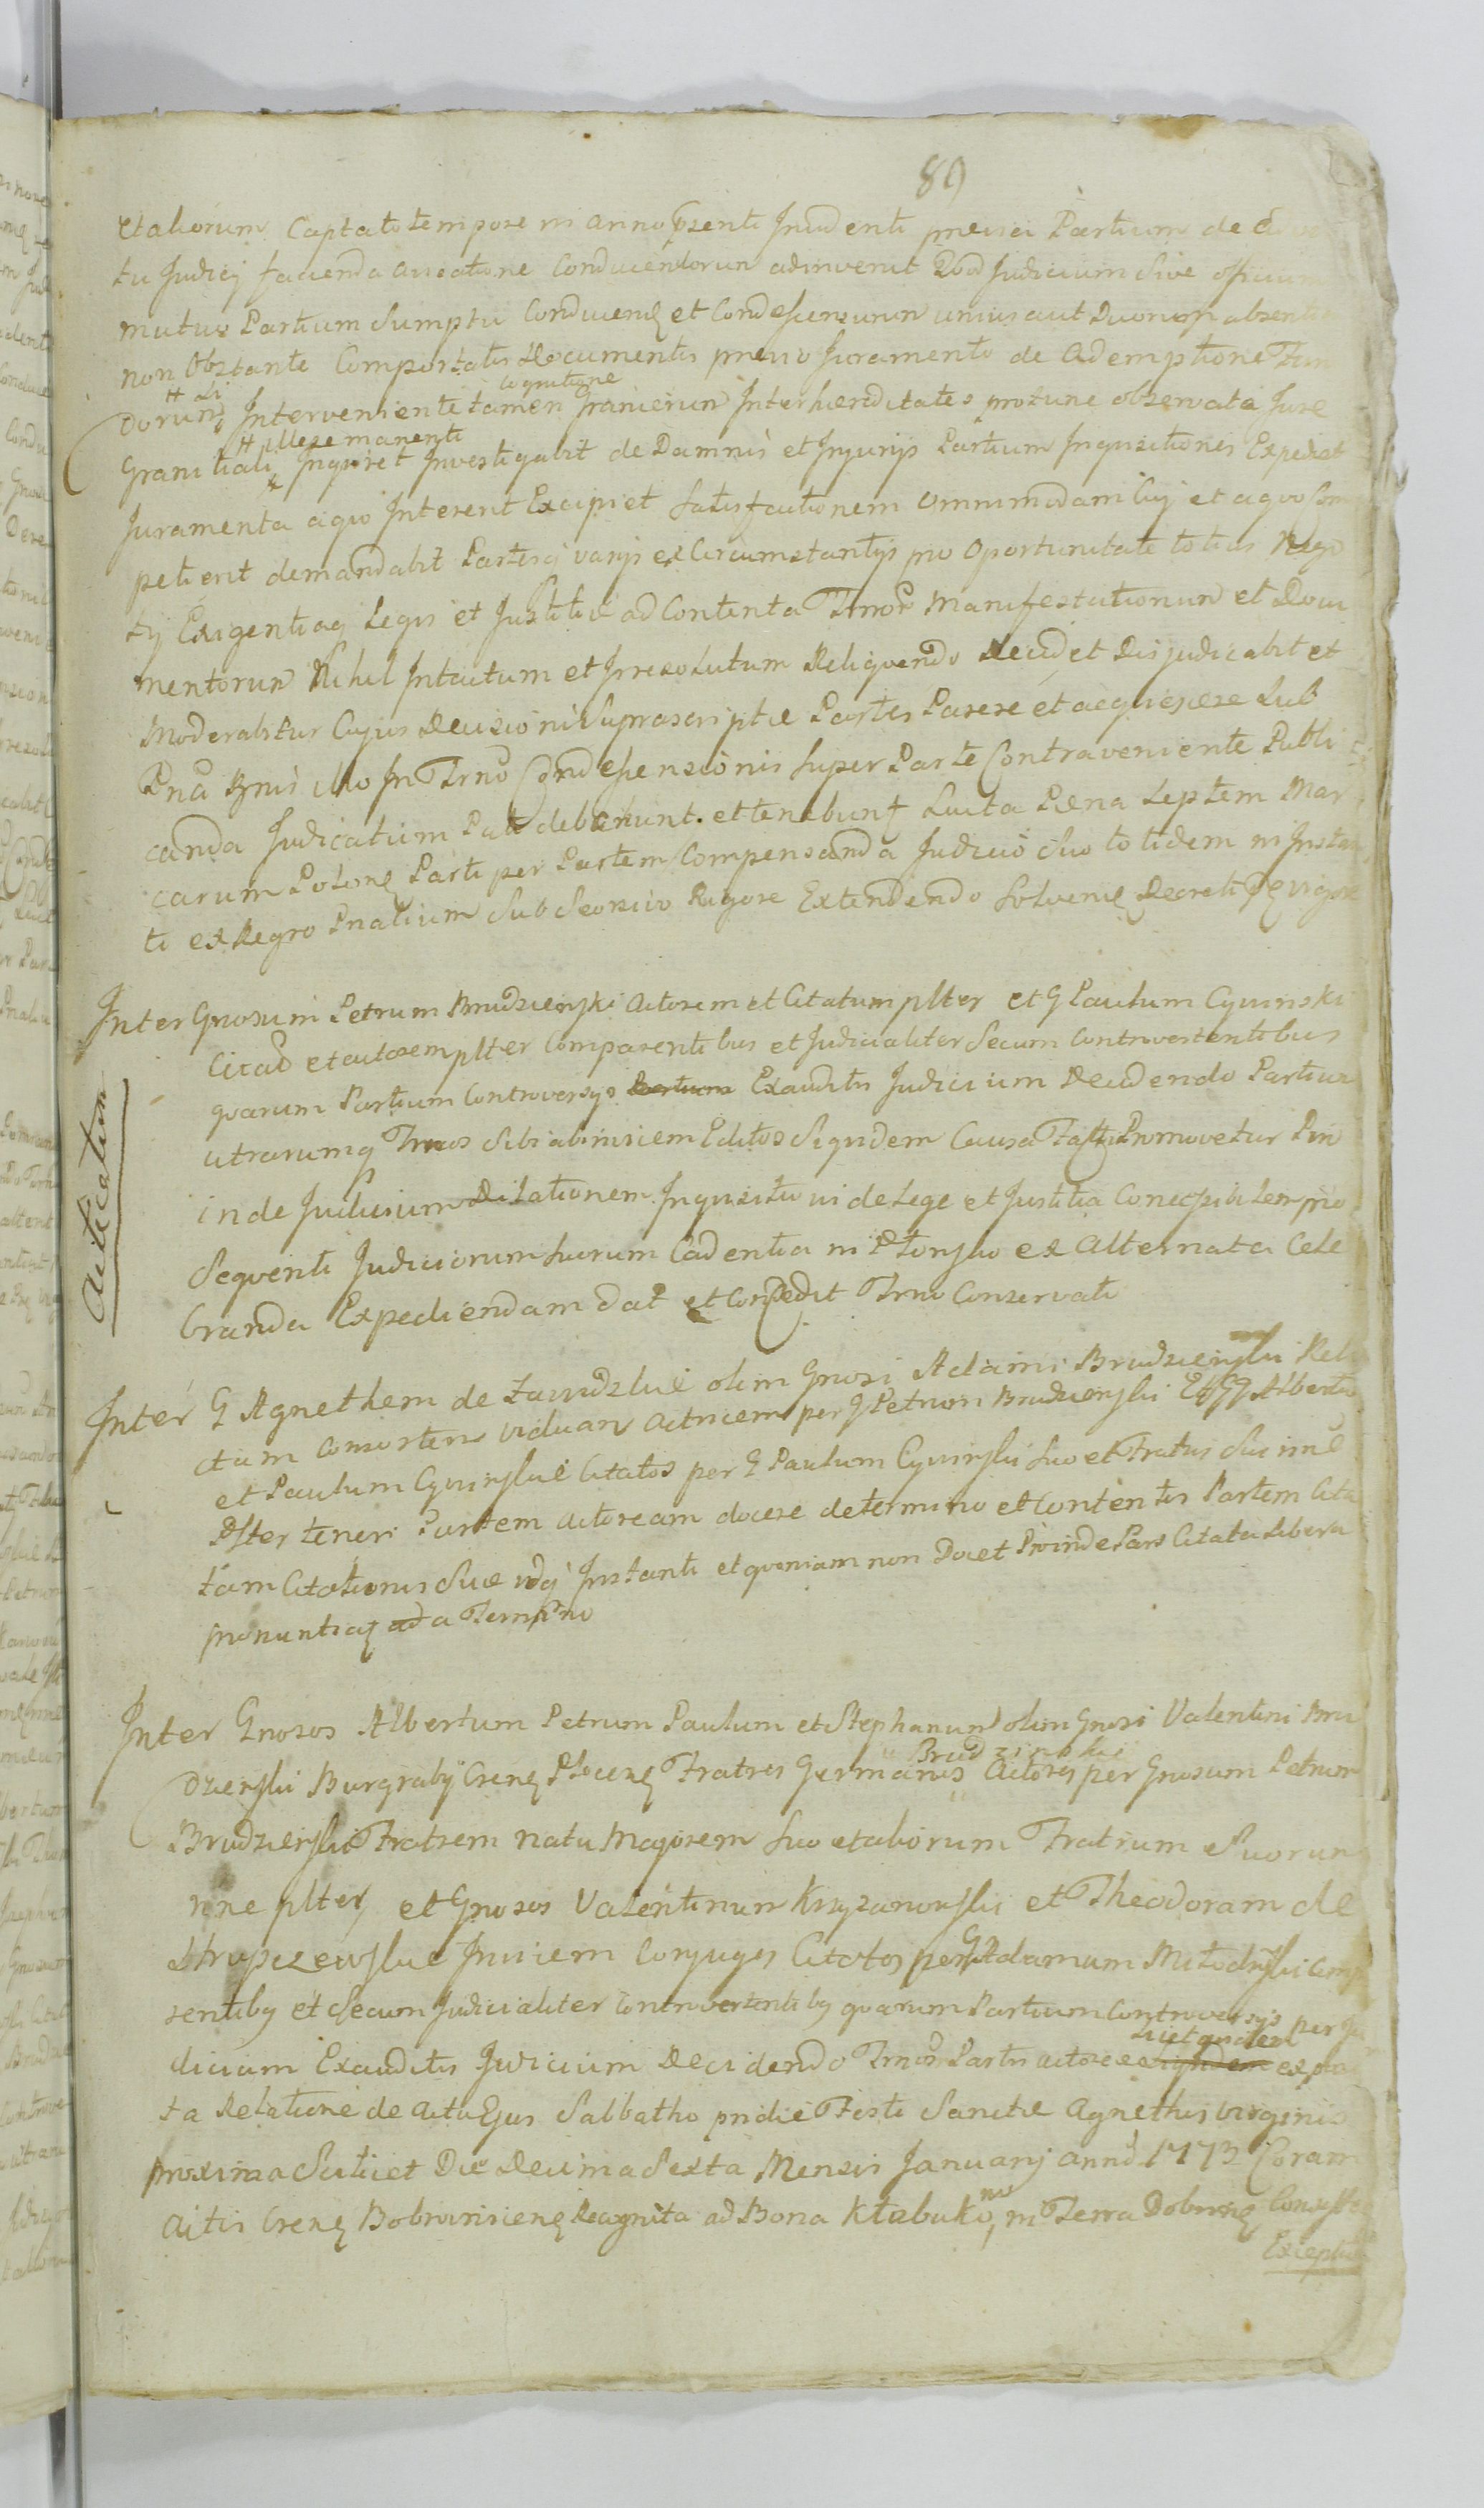 89
et aliorum Captato tempore in anno prsenti Incidenti previa Partium de
tu Judicij facienda avisatione Conducentorum adinvenit Qvod Judicium Sive officium
mutuo Partium Sumptu Conducenq et Condescensurum unius aut Duorum absentia
non Obstante Comportatis Documentis previo Juramento de Ademptione Fun
cognitione
dorum Interveniente tamen Granicierum Inter hereditates protunc observata Jure
# illese manenti
Granitiali Inqviret Investigabit de Damnis et Injurijs Partium Inqvisitiones Expediet
Juramenta a qvo Interent Excipiet Satisfactionem Omnimodam Cuj et a qvo Com
petierit demandabit Partesq varijs ex Circumstantijs pro Oportunitate totius Nego
tij Exigentiaq Legis et Justitiæ ad Contenta Trnor Manifestationum et Docu
mentorum Nihil Intactum et Irresolutum Reliqvendo Decidet Disjudicabit et
Moderabitur Cujus Decisioni Suprascriptæ Partes Parere et acqviescere Sub
Pna Bnis illo In Trno Condescensionis Super Parte Contraveniente Publi
canda Judicatum Pati debebunt. et tenebunt Lucta Pena Septem Mar
carum Polonq Parti per Partem Compensanda Judicio suo totidem in Instan
ti ex Regro Pnalium Sub Seorsivo Rigore Extendendo Solvenq Decreti Psq vigore
Inter Gnosum Petrum Brudzienski actorem et Citatum plter et G Paulum Cywinski
Citad et actorem plter Comparentibus et Judicialiter Secum Controvertentibus
qvarum Partium Controversijs Exauditis Judicium Decidendo Partium
utrarumq Trnos Sibi abinvicem Editos Siqvidem Causa Facti Promovetur Pro
inde Judicium Dilationem Inqvisitio ni de Lege et Justitia Conecssibilem pro
Seqventi Judiciorum Suorum Cadentia in Ptonsko ex Alternata Cele
branda Expediendam dat et Concedit Trno Conservati
Acticatum
Inter G Agnethem de Zawidzkie olim Gnosi Adami Brudzienski Reli
ctam Consortem viduam Actricem per G Petrum Brudzienski Et GG Albertum
et Paulum Cywinskie Citatos per G Paulum Cywinski Suo et Fratris Sui nne
Plter teneri Partem Actoream docere de termino et Contentis Partem Cita
tam Citationis Suæ idq Instanti et qvoniam non Docet Proinde Pars Citata Libera
pronuntiaq ad a Termino
Inter Gnosos Albertum Petrum Paulum et Stephanum olim Gnosi Valentini Bru
Brudzinskie
dzienski Burgrabij Crenq Plocenq Fratres Germanos Actores per Gnosum Petrum
Brudzienski Fratrem natu Majorem Suo et aliorum Fratrum Suorum
nne plter et Gnosos Valentinum Krzyzanowski et Theodoram de
Strupczewskie Invicem Conjuges Citatos per G Adamum Młodzki Comp
rentibq et Secum Judicialiter Controvertentibq qvarum Partium Controversijs per Ju
licet qvidem
dicium Exauditis Judicium Decidendo Trnor Partis actoreæ ex par
ta Relatione de Actu Ejus Sabbatho pridie Festi Sanctæ Agnethis virginis
proxima Scilicet Die Decima Sexta Mensis Januarij Anno 1773 Coram
Actis Crenq Bobrovnicenq Recognita ad Bona Kłobukowo in Terra Dobrinq
Exceptis